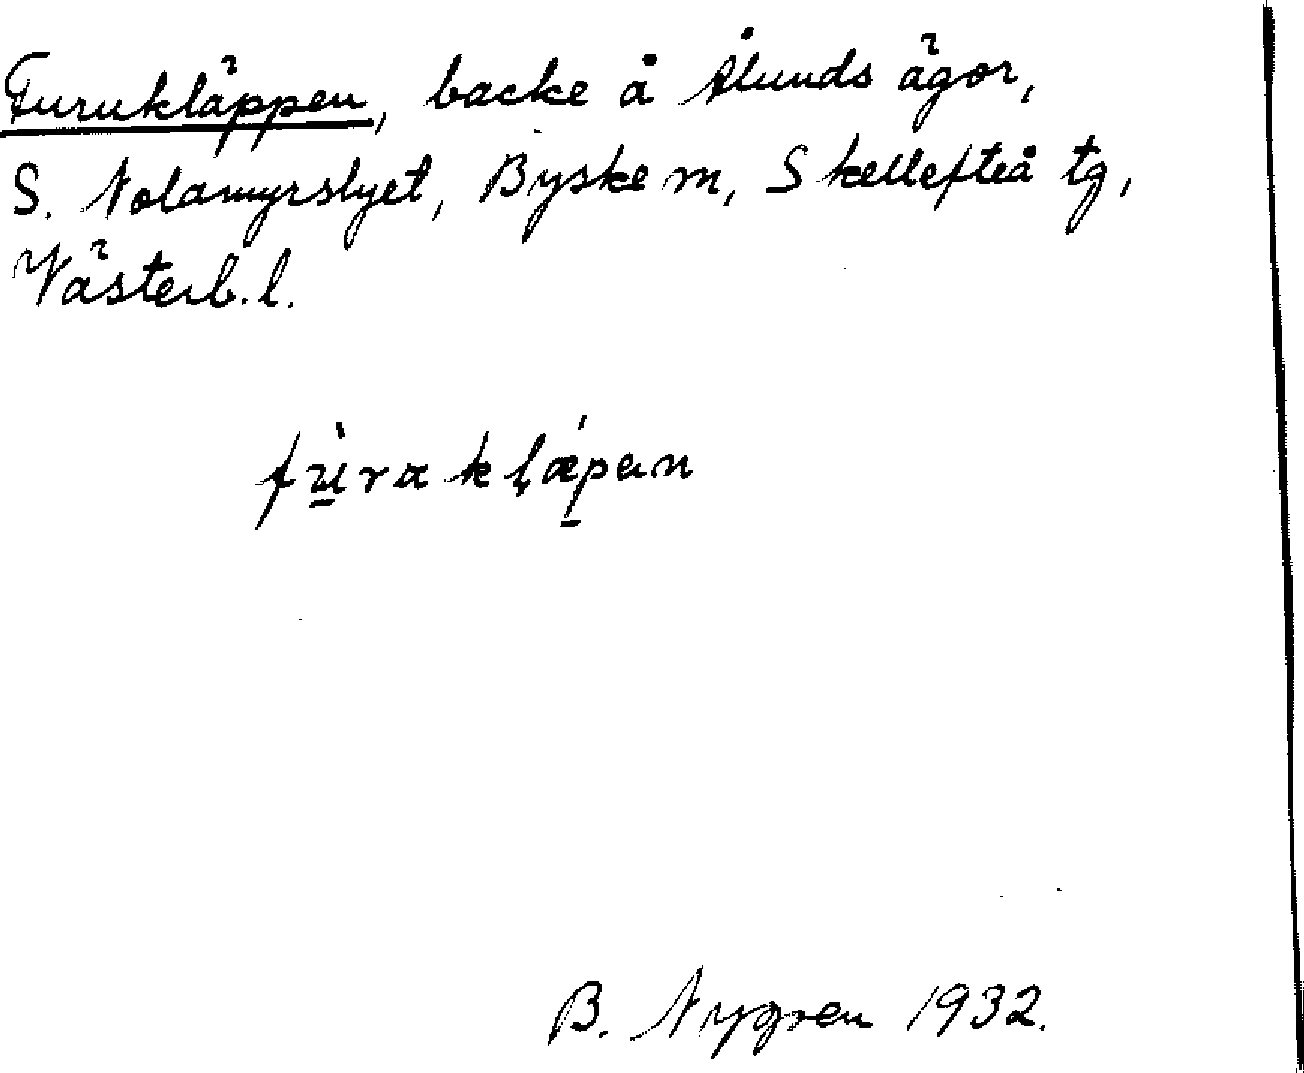 Furukläppen, backe å Ålunds ägor,
S. Nolamyrslyet, Byske sn, Skellefteå tg,
Västerb. l.
fu̱̇̀raklǽ̣pan
B. Nygren 1932.